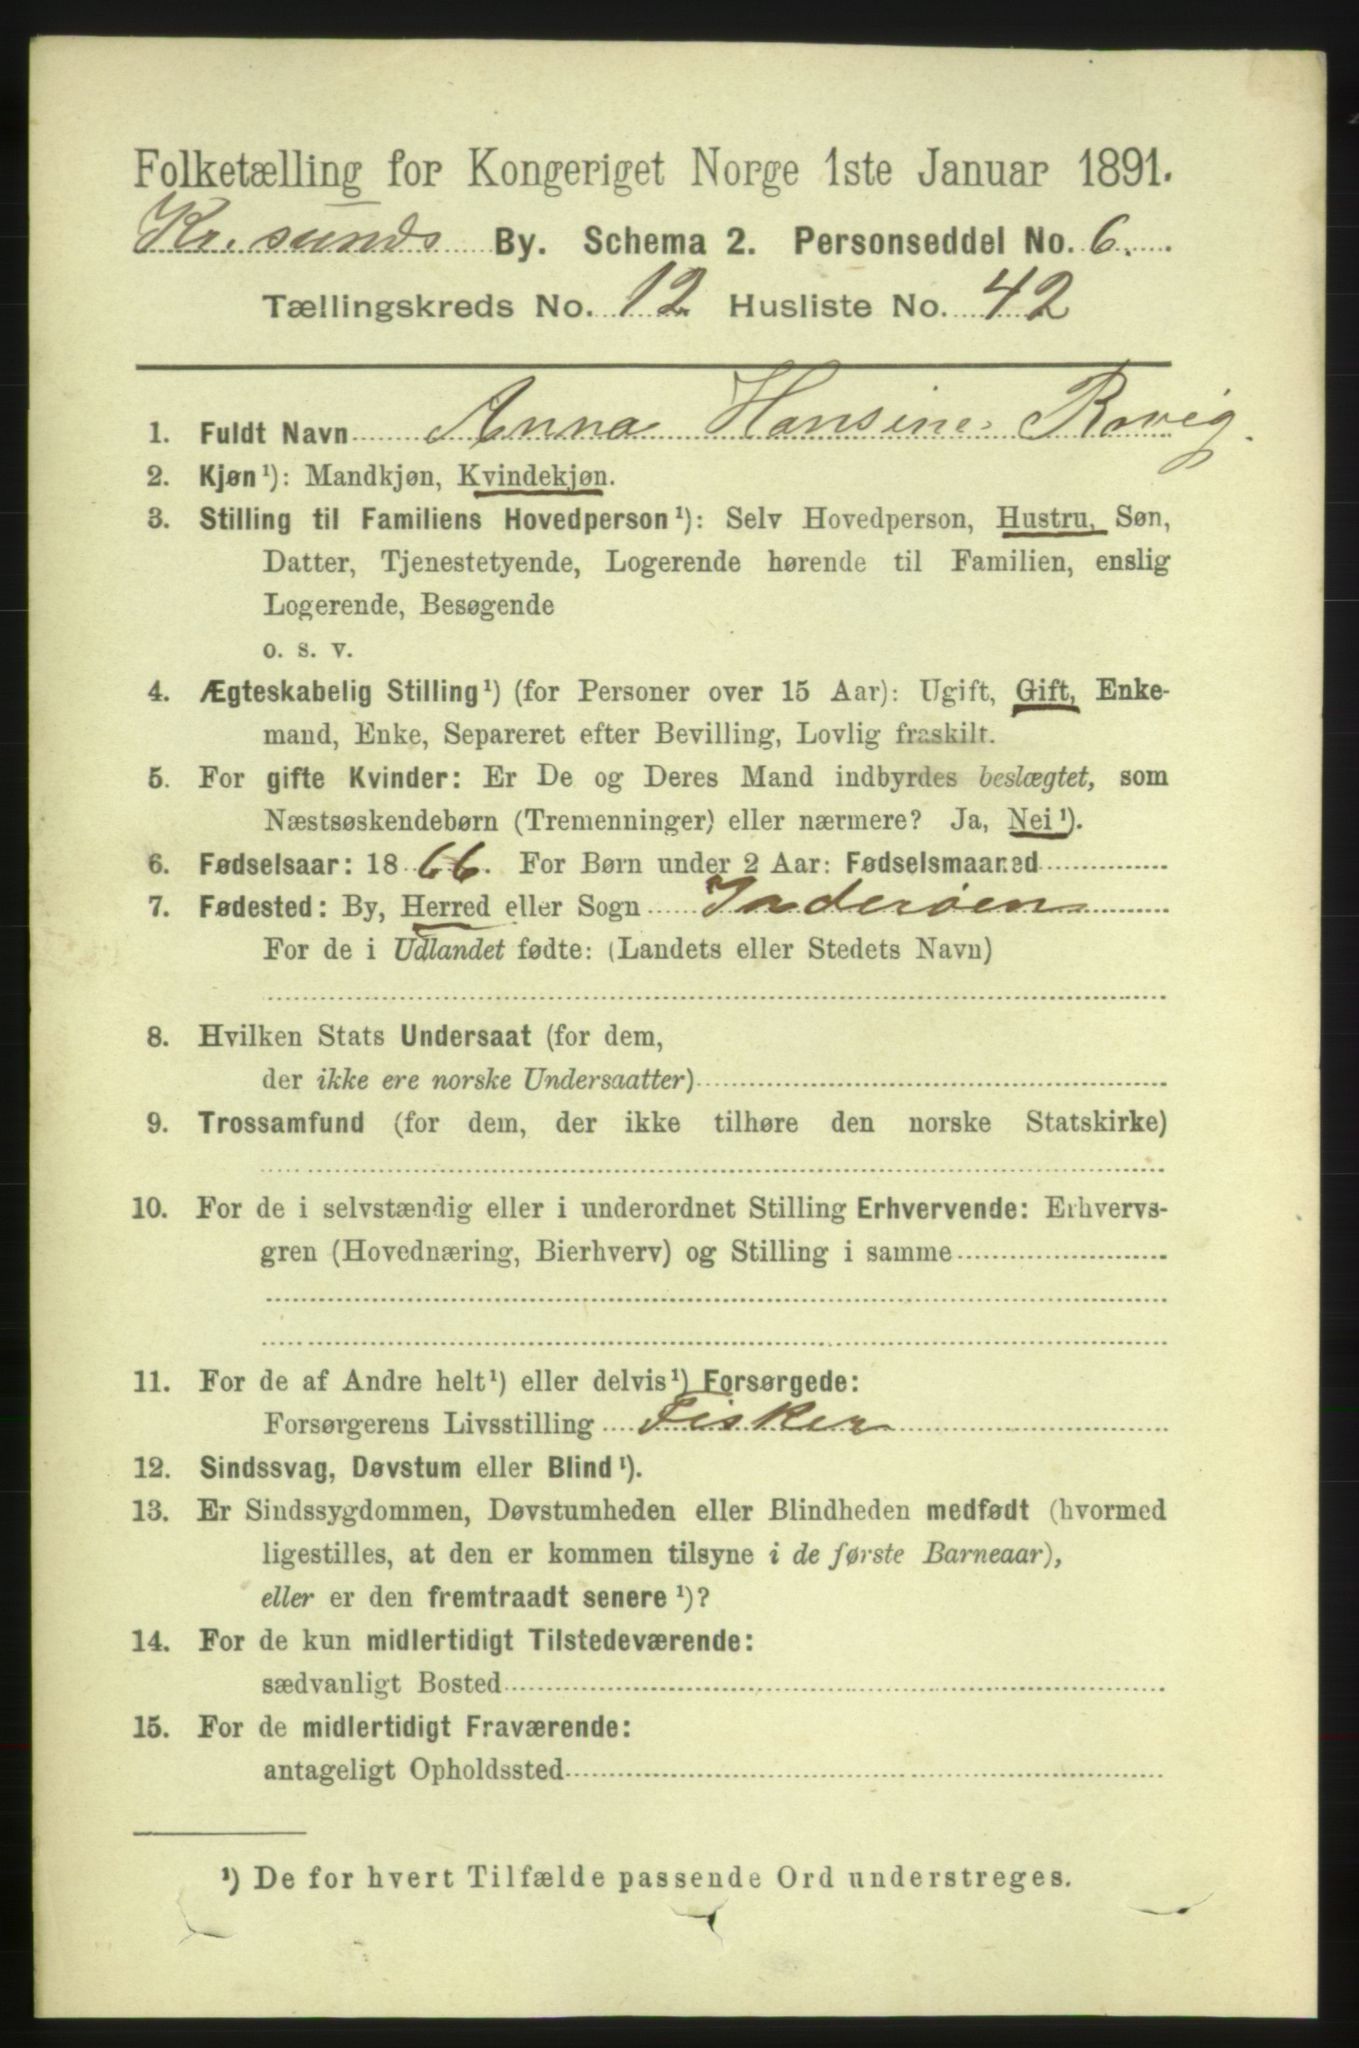 Folketælling for Kongeriget Norge 1ste Januar 1891.
Kr.sunds By. Schema 2. Personseddel No. 6.
Tællingskreds No. 12. Husliste No. 42
1. Fuldt Navn Anna Hansine Rovig.
2. Kjøn¹): Mandkjøn, Kvindekjøn.
3. Stilling til Familiens Hovedperson¹): Selv Hovedperson, Hustru, Søn,
Datter, Tjenestetyende, Logerende hørende til Familien, enslig
Logerende, Besøgende
o. s. v.
4. Ægteskabelig Stilling¹) (for Personer over 15 Aar): Ugift, Gift, Enke-
mand, Enke, Separeret efter Bevilling, Lovlig fraskilt.
5. For gifte Kvinder: Er De og Deres Mand indbyrdes beslægtet, som
Næstsøskendebørn (Tremenninger) eller nærmere? Ja, Nei¹).
6. Fødselsaar: 1866. For Børn under 2 Aar: Fødselsmaaned
7. Fødested: By, Herred eller Sogn Inderøen
For de i Udlandet fødte: (Landets eller Stedets Navn)
8. Hvilken Stats Undersaat (for dem,
der ikke ere norske Undersaatter)
9. Trossamfund (for dem, der ikke tilhøre den norske Statskirke)
10. For de i selvstændig eller i underordnet Stilling Erhvervende: Erhvervs-
gren (Hovednæring, Bierhverv) og Stilling i samme
11. For de af Andre helt¹) eller delvis¹) Forsørgede:
Forsørgerens Livsstilling Fisker
12. Sindssvag, Døvstum eller Blind¹).
13. Er Sindssygdommen, Døvstumheden eller Blindheden medfødt (hvormed
ligestilles, at den er kommen tilsyne i de første Barneaar),
eller er den fremtraadt senere¹)?
14. For de kun midlertidigt Tilstedeværende:
sædvanligt Bosted
15. For de midlertidigt Fraværende:
antageligt Opholdssted
¹) De for hvert Tilfælde passende Ord understreges.